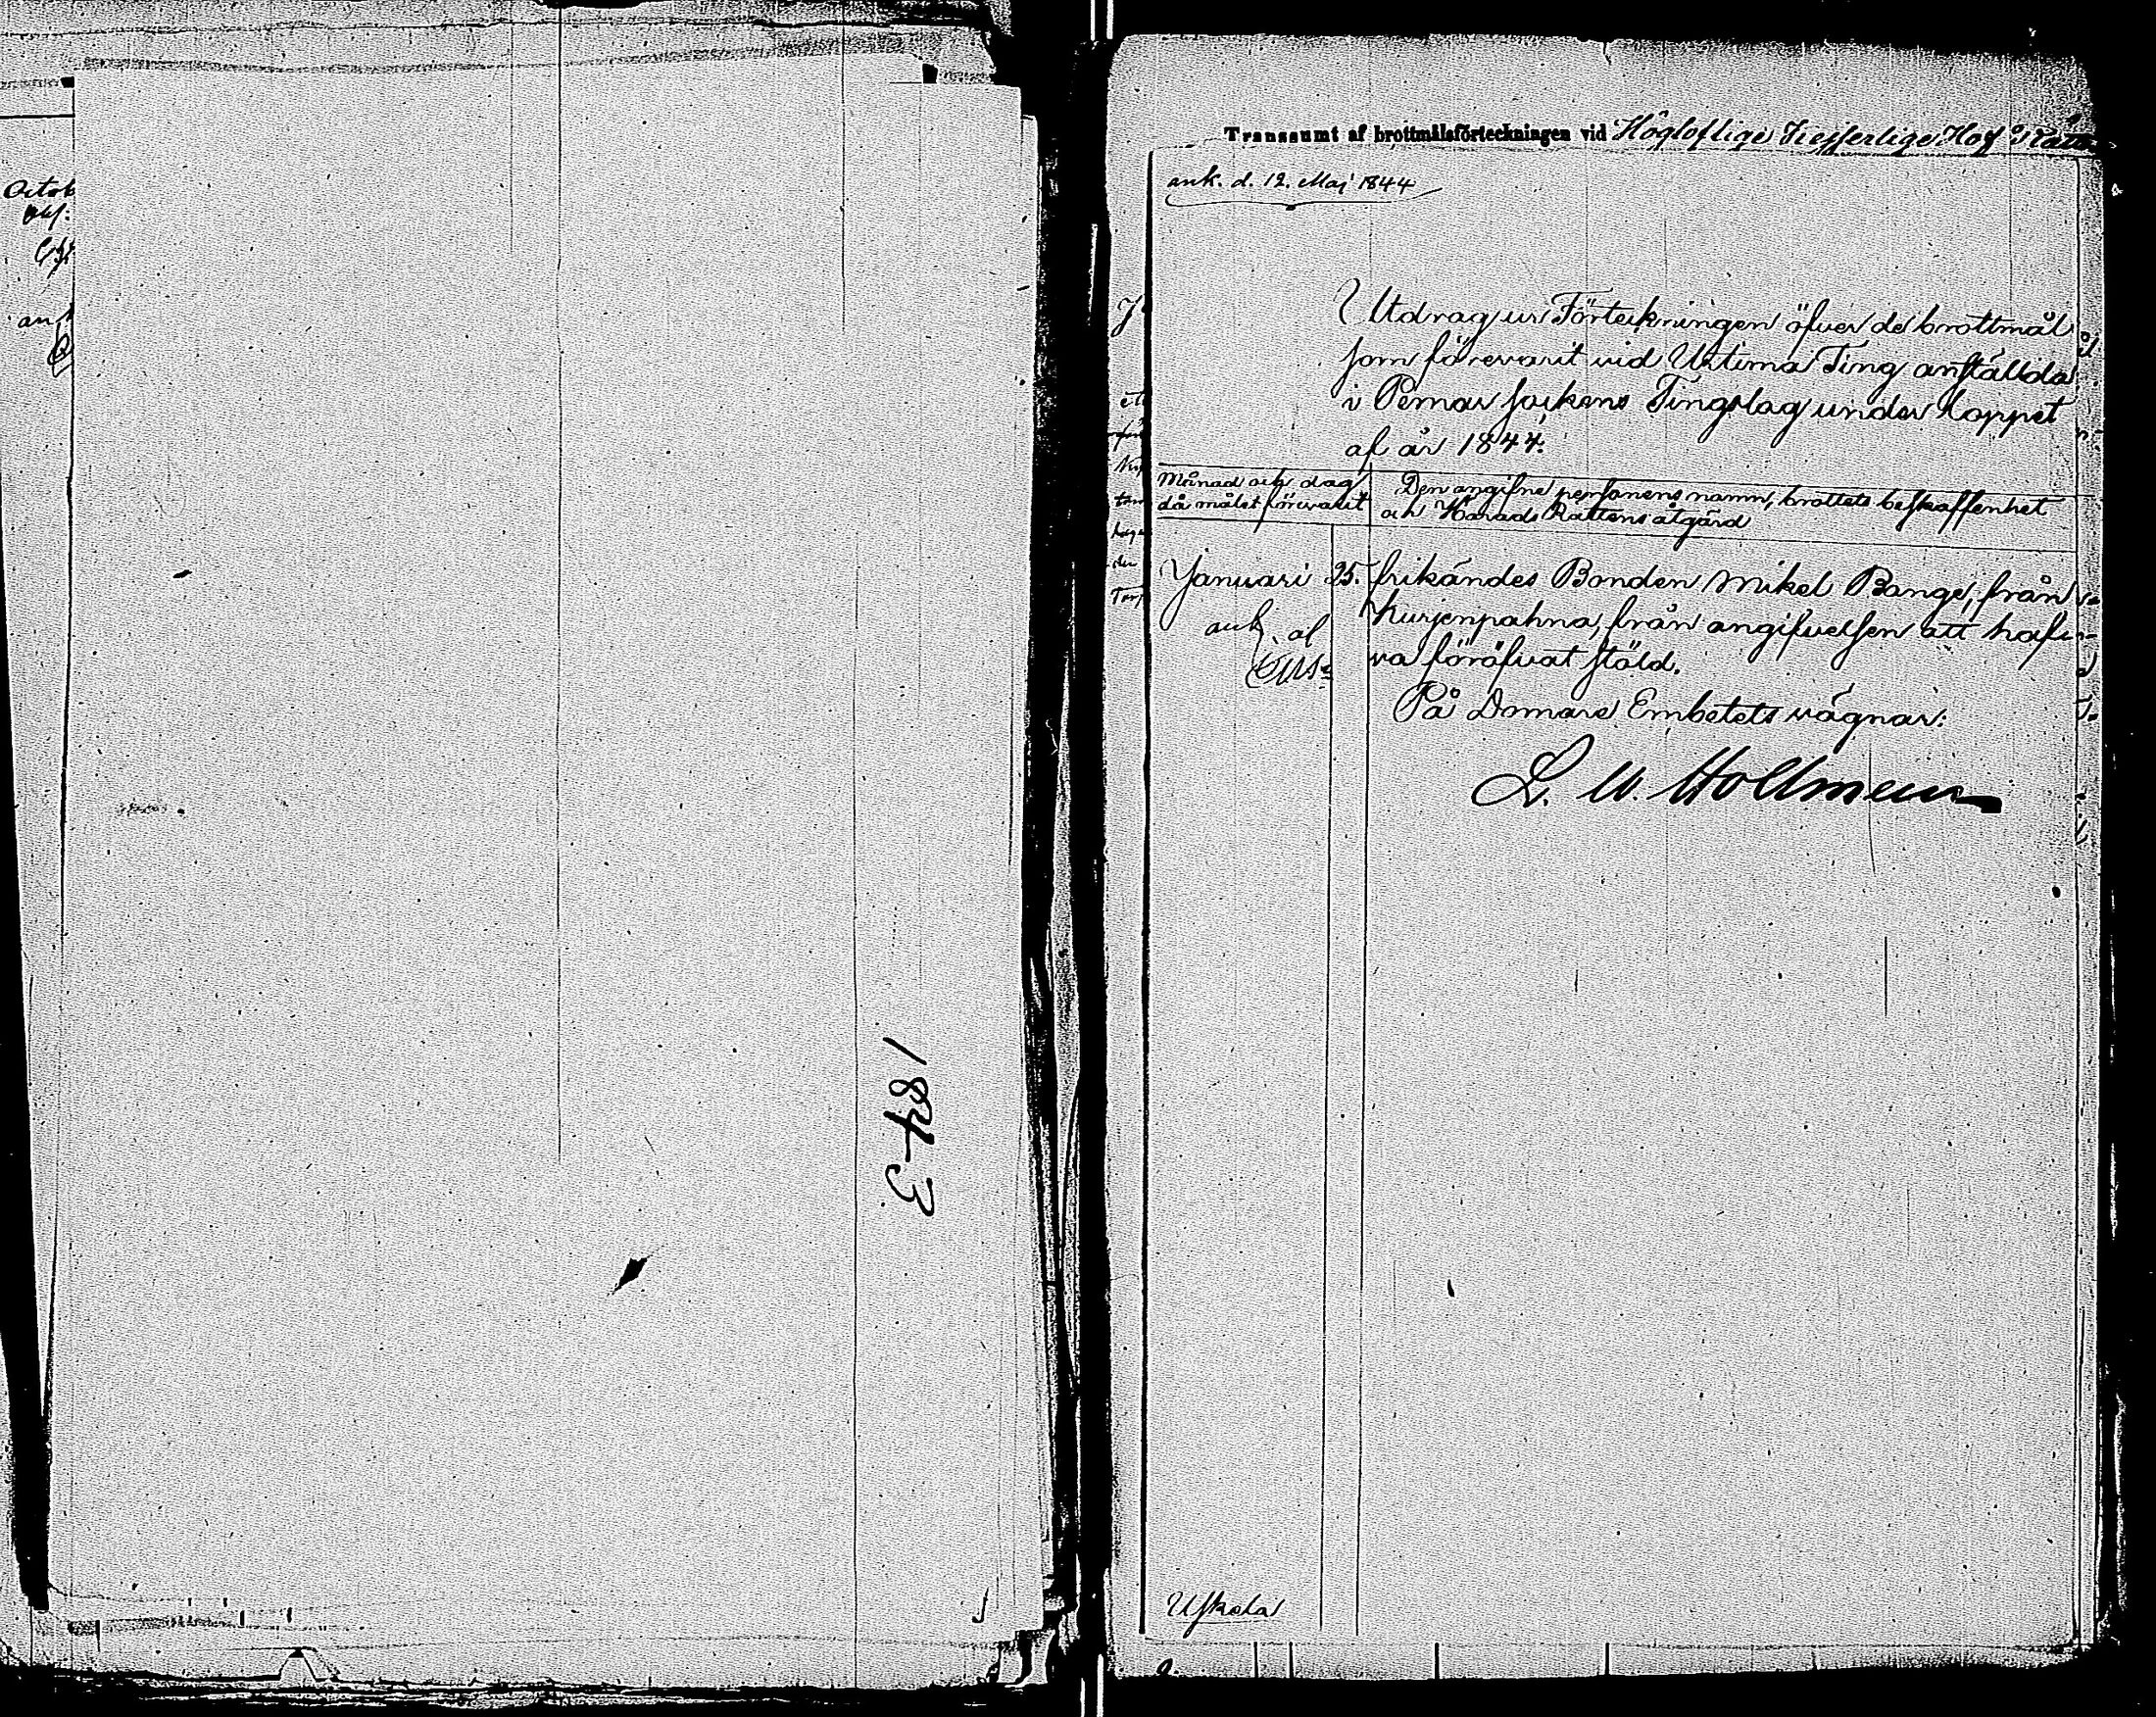 Octob
an
1843
Transsumt af brottmålsförteckningen vid Högloflige Kejserlige Hof Rätt
ank. d. 12. Maj 1844
Utdrag ur Förteckningen öfver de brottmål
som förevarit vid Urtima Ting anställda
i Pernar Sockens Tingslag under loppet
af år 1844.
Månad och dag
då målet förevarit
Den angifne personens namn, brottets beskaffenhet
och Härads Rättens åtgärd
Januari 25. frikändes Bonden Mikel Bange, från
Kurjenpahna, från angifvelsen att haf-
va föröfvat stöld.
ank. af
På Domare Embetets vägnar:
L. W. Hollmen